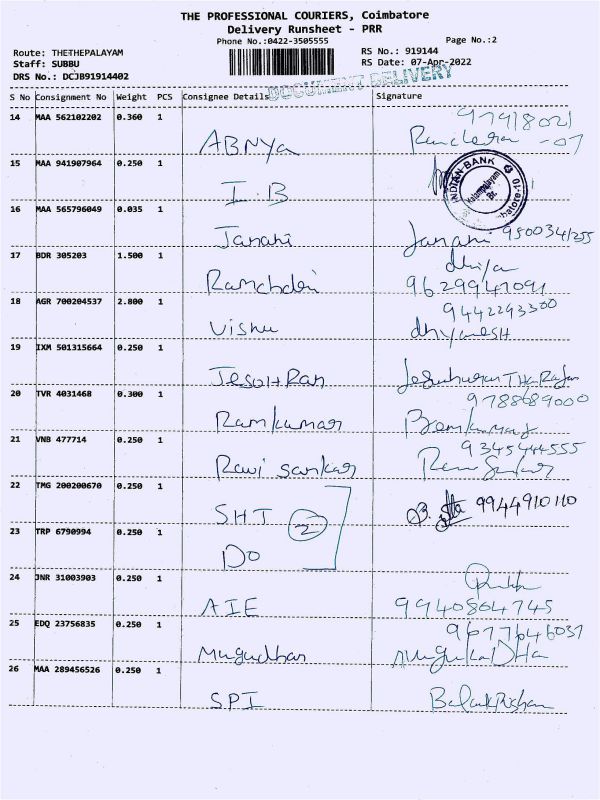 THE PROFESSIONAL COURIERS, Coimbatore
Delivery Runsheet - PRR
Phone No.:0422-3505555
Page No.:2
Route: THETHEPALAYAM
Staff: SUBBU
DRS No.: DCJB91914402
RS No.: 919144
RS Date: 07-Apr-2022
DOCUMENT DELIVERY
S No Consignment No Weight PCS Consignee Details Signature
14 MAA 562102202 0.360 1
ABNYA
97918021
-07
15 MAA 941907964 0.250 1
I.B
INDIAN-BANK
Br.
16 MAA 565796049 0.035 1
Janani Janani 9500341255
17 BDR 305203 1.500 1
dhiya
9629941091
18 AGR 700204537 2.800 1
9442293300
Vishu dhyanesH
19 IXM 501315664 0.250 1
20 TVR 4031468 0.300 1
9788689000
Ramkumar
21 VNB 477714 0.250 1
9345444555
Ravi sankar
22 TMG 200200670 0.250 1
SHT 2 9944910110
23 TRP 6790994 0.250 1
Do
24 JNR 31003903 0.250 1
AIE 9940864745
25 EDQ 23756835 0.250 1
9677646037
Mugudhan
26 MAA 289456526 0.250 1
SPI